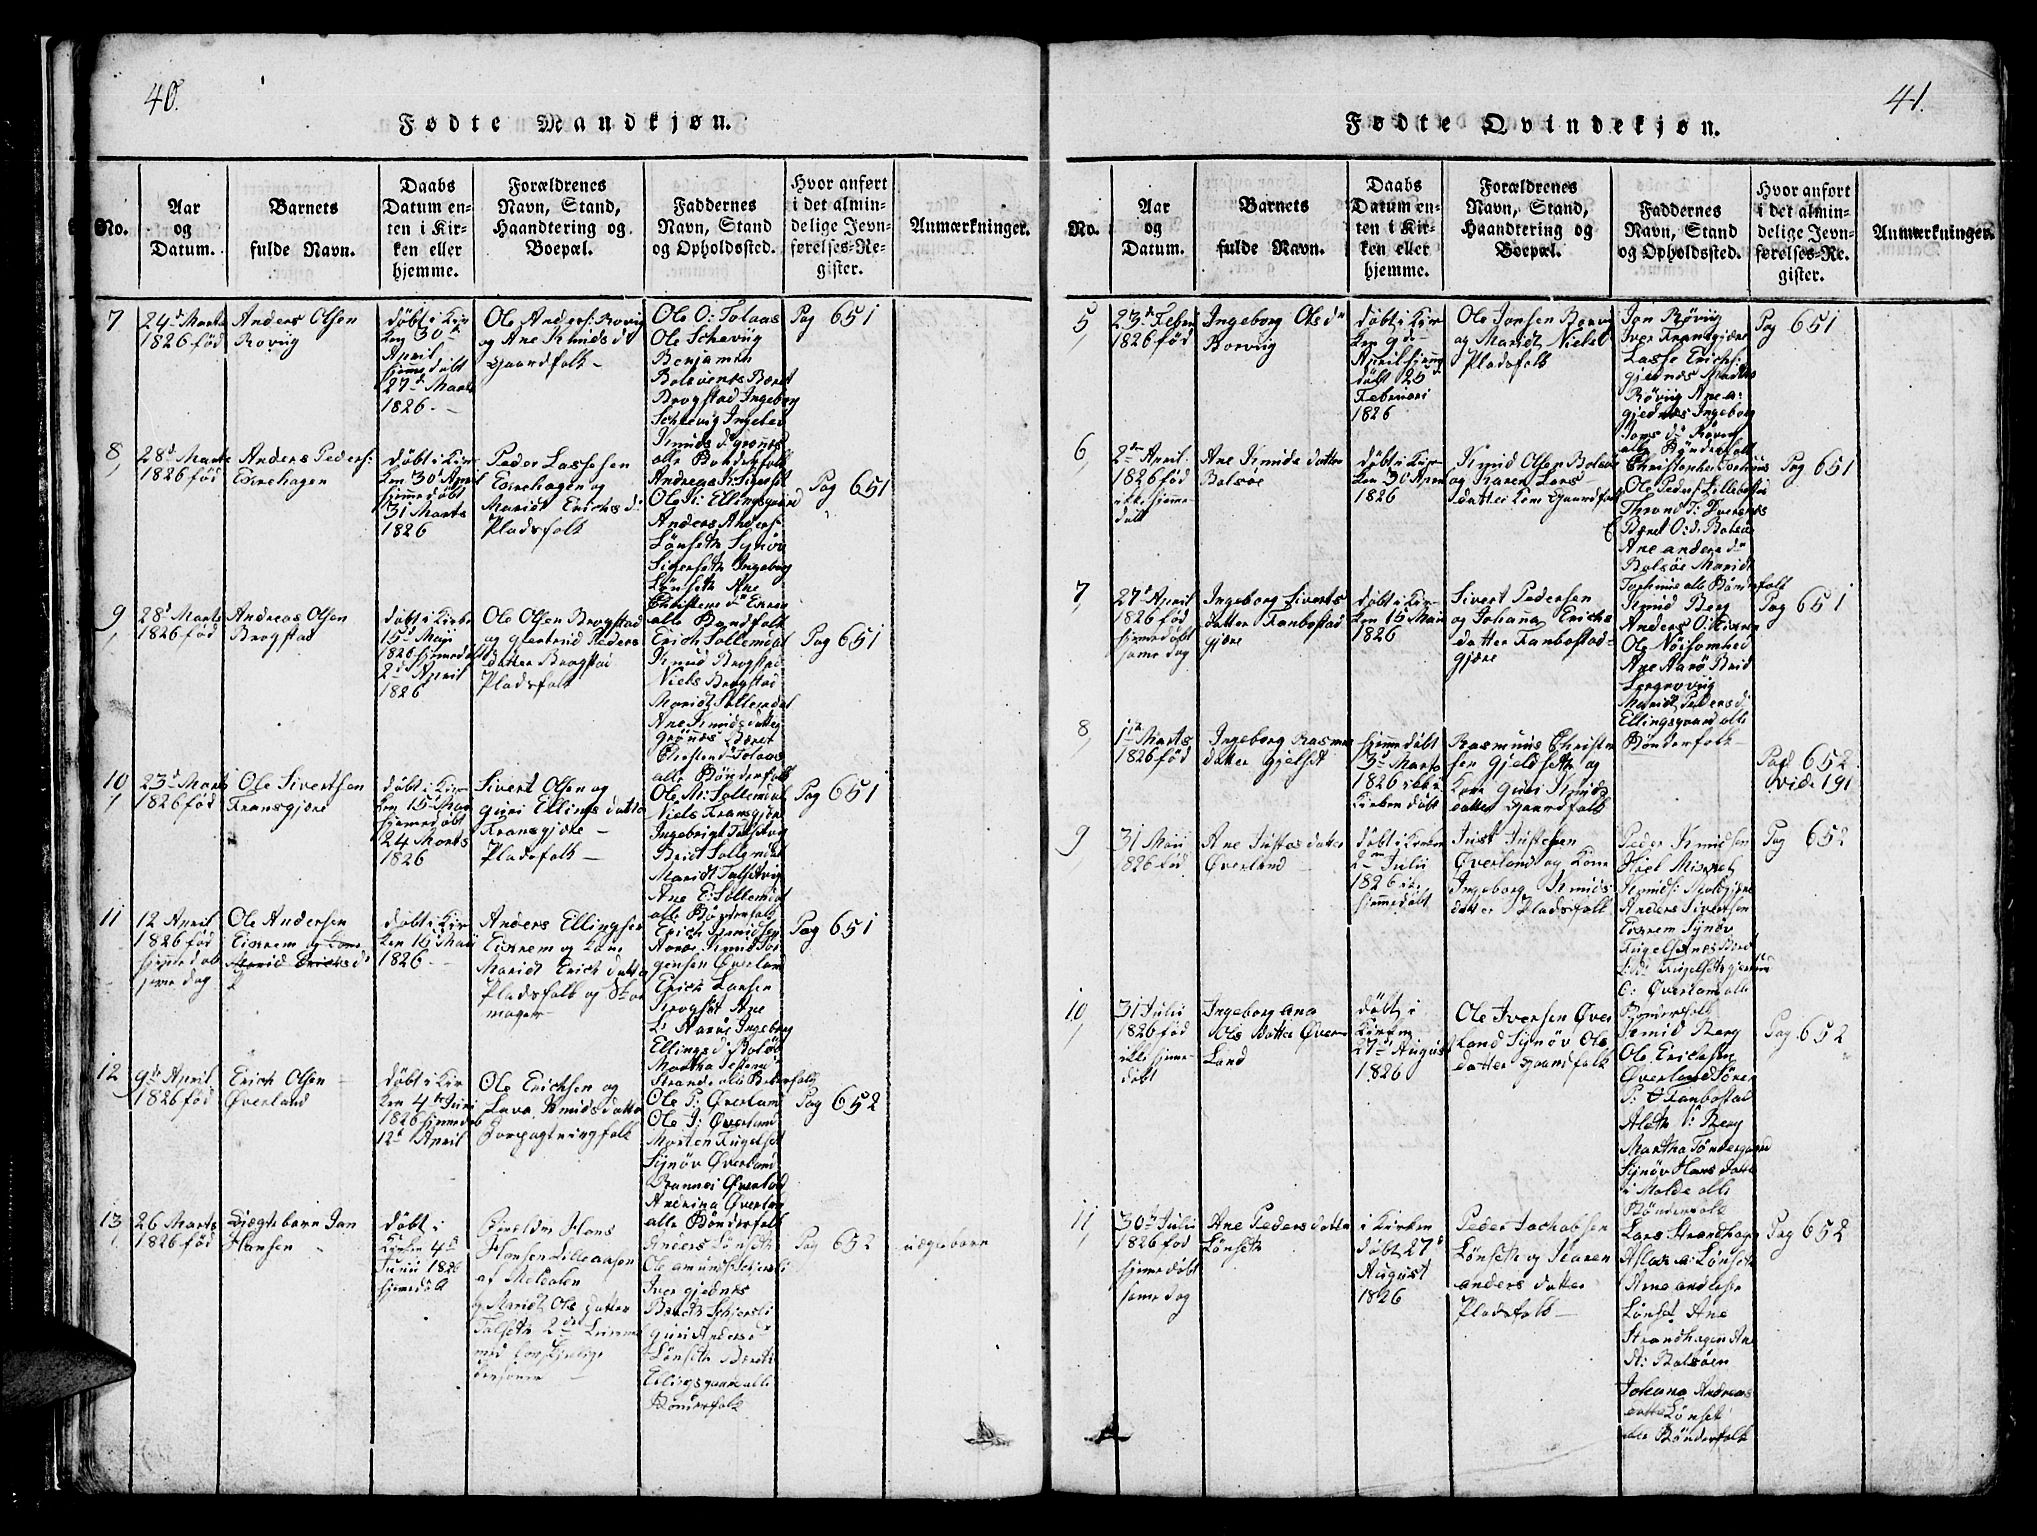 40.
Fødte Mandkjøn.
No.
Aar
og
Datum.
Barnets
fulde Navn.
Daabs
Datum en-
ten i Kir-
ken eller
hjemme.
Forældrenes
Navn, Stand,
Haandtering og
Boepæl.
Faddernes
Navn, Stand
og Opholdssted.
Hvor anført
i det almin-
delige Jevn-
førelses-Re-
gister.
Anmærkninger.
7
24d Marts
1826 fød
Anders Olsen
Rovug
døbt i Kir
ken 30d
April
hjemedøbt
27d Marts
1826
Ole Anders: Rovig
og Ane Knuds d
Gaardfolk
Ole O: Tolaas
Ole Schevug
Benjamin
Bolsvents Beret
Brogstad Ingeborg
Schevig Ingebor
Knuds d: grønes
alle Bønderfolk
Pag 651
8
28d Marts
1826 fød
Anders Peders:
Eirehagen
døbt i Kir
ken 30 April
hjemedøbt
31 Marts
1826
Peder Lassesen
Eirehagen og
Maridt Erichs d:
Pladsfolk
Andreas K: Sigerset
Ole K: Ellingsgaard
Anders Anders:
Lønseth Synøv
Sigerseth Ingeborg
Lønseth Ane
Christens d: Eirem
alle Bøndfolk
Pag 651
9
28d Marts
1826 fød
Andreas Olsen
Brogstad
døbt i Kirke
15d Maji
1826 hjemedøbt
2d April
1826
Ole Olsen Brogstad
og Giertrud Peders
datter Brogstad
Pladsfolk
Erich Sollemdal
Knud Brogstad
Niels Brogstad
Maridt Sollemdal
Ane Knudsdatter
grønes Beret
Christens d Tolaas
alle Bønderfolk
Pag 651
10
23d Marts
1826 fød
Ole Sivertsen
Fransgjære
døbt i Kir
ken 15 Maji
hjemedøbt
24 Marts
1826
Sivert Olsen og
Guri Ellings datter
Fransgjære
Pladsfolk
Ole M: Sollemdal
Niels Fransgjære
Ingebrigt Talsetvig
Brit Sollemdal
Maridt Talsetvig
Ane E: Sollemdal
alle Bønderfolk
Pag 651
11
12 April
1826 fød
hjemedøb
sme dag
Ole Andersen
Eikrem og Kone
Marid Erichs d:
døbt i Kir
ken 15 Maji
1826
Anders Ellingsen
Eikrem og Kone
Maridt Erich datter
Pladsfolk og Sko
mager
Erich Knudsen
Aarøe Knud Jør
gensen Øverland
Erich Larsen
Krogset Ane
L: Aarøe Ingeborg
Ellings d: Bolsø
Martha Jestena
Strande alle Bønderfolk
Pag 651
12
9de April
1826 fød
Erich Olsen
Øverland
døbt i Kir
ken 4de Juni
1826 hjemedøb
12d April
Ole Erichsen og
Lava Knudsdatter
Forpagtningfolk
Ole P: Øverland
Ole J: Øverland
Morten Fugelset
Synøv Øverland
Rannei Øverland
Andrina Øverland
alle Bønderfolk
Pag 652
13
26 Marts
1826 fød
Uægtebarn Jan
Hansen
døbt i
Kirken 4d
Junii 1826
hjemedøbt
Hans
Hansen Lilleaasen
af Meldalen
og Maridt Ols datter
Talseth 2den Leierm
med forskjelige
Personer
Anders Lønseth
Ole Amunds: Schiersli
Iver Gjednes
Beret Schiersli
Guri Anders d
Lønseth Beret
Ellingsgaard alle
Bønderfolk
Pag 652
uægtebarn
41.
Fødte Qvindekjøn.
No.
Aar
og
Datum.
Barnets
fulde Navn.
Daabs
Datum en-
ten i Kir-
ken eller
hjemme.
Forældrenes
Navn, Stand,
Haandtering og
Boepæl.
Faddernes
Navn, Stand
og Opholdssted.
Hvor anført
i det almin-
delige Jevn-
førelses-Re-
gister.
Anmærkninger.
5
23d Febru
1826 fød
Ingeborg Ols dr
Borvug
døbt i Kir
ken 9de
April hjeme
døbt 25d
Februari
1826
Ole Jonsen Borvug
og Maridt Niels d
Pladsfolk
Jon Røvug
Iver Fransgjære
Lasse Erichs:
gjednæs Marithe
Røvug Ane a:
gjednæs Ingeborg
Joms d: Røvug
alle Bønderfolk
Pag 651
6
2den April
1826 fød
ikke hjeme
døbt
Ane Knuds datter
Bolsøe
døbt i Kir
ken 30 April
1826
Knud Olsen Bolsøe
og Karen Lars
datter Kone Gaardfolk
Christopher Torhuus
Ole Peders: Lillebostad
Thrond T: Dversnes
Beret O: d: Bolsøe
Ane anders dr
Bolsøe Maridt
Torhuus alle Bønderfolk
Pag 651
7
27d April
1826 fød
hjemedøbt
same dag
Ingeborg Siverts
datter Fanbostad
gjære
døbt i Kir
ken 15 Maii
1826
Sivert Pedersen
og Johana Erichs
datter Fanbostad-
gjære
Knud Berg
Anders O: Eirem
Ole Nøisomhed
Ane Aarø Brid
Lergrovug
Maridt Peders d:
Ellingsgaard alle
Bønderfolk
Pag 651
8
1ste Marts
1826 fød
Ingeborg Rasmus
datter Gjelset
hjemedøbt
3d Marts
1826 ikke i
Kirken døbt
Rasmuus Christen
sen Gjeldseth og
Kone Guri Knuds
datter Gaardfolk
Pag 652
vide 191
9
31 Maii
1826 fød
Ane Justas datter
Øverland
døbt i Kirken
2den Julii
1826 ik:
hjemedøbt
Just Justesen
Øverland og Kone
Ingeborg Knuds
datter Pladsfolk
Peder Knudsen
Hoel Mikkel
Knuds: Moldegjære
Anders Sivertsen
Eikrem Synøv
Fugelset Ane Brid
L: d: Fugelseth
E: Øverland alle
Bønderfolk
Pag 652
10
31 Julii
1826 fød
ikke hjeme
døbt
Ingeborg Ana
Ols datter Øver-
land
døbt i
Kirken
27d August
1826
Ole Iversen Øver
land Synøv Ols
datter Gaardfolk
Knud Berg
Ole Erichsen
Øverland Søren
P: Fanbostad
Aleth L: Berg
Martha Tøndergaard
Synøv Hans datter
i Molde alle
Bønderfolk
Pag 652
11
30te Julii
1826 fød
hjemedøbt
same dag
Ane Peders datter
Lønseth
i Kirken
døbt 27d
August
1826
Peder Jachobsen
Lønseth og Karen
anders datter
Pladsfolk
Lars Strandhagen
Aslak a: Lønseth
Arne andersen
Lønset Ane
Strandhagen Ane
A: Bolsøen
Johana Andreas
datter Lønset
alle Bønderfolk
Pag 652